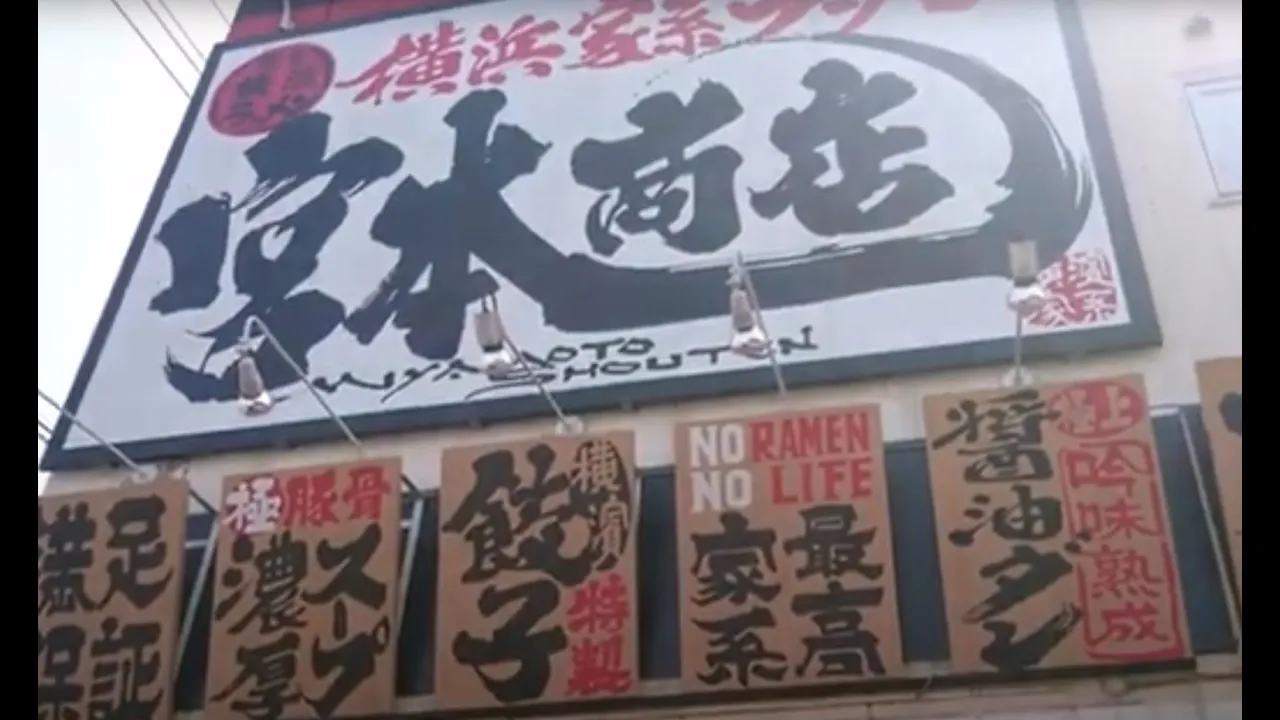 横浜家系ラーメン
宮本商店
MIYAMOTO
SHOUTEN
満足
保証
極豚骨
濃厚
スープ
横濱
餃子
特製
NO RAMEN
NO LIFE
最高
家系
極上
吟味熟成
醤油ダレ